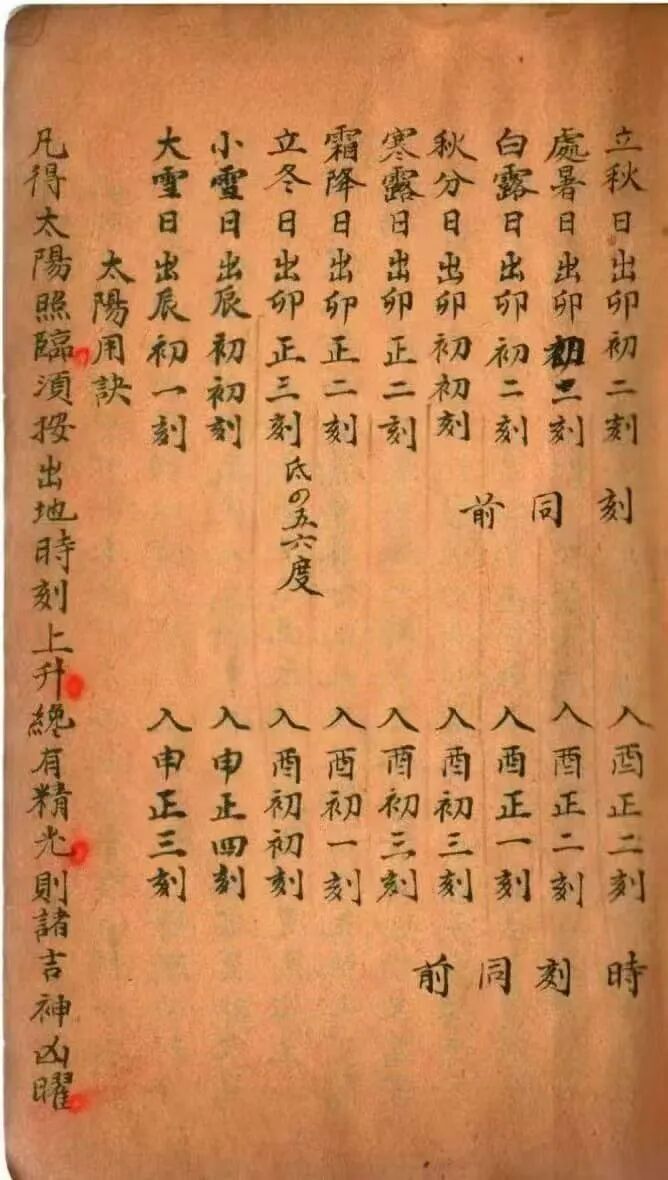 立秋日出卯初二刻 入酉正二刻
處暑日出卯初二刻 入酉正二刻
白露日出卯初二刻 入酉正一刻
秋分日出卯初初刻 入酉初三刻
寒露日出卯正二刻 入酉初三刻
霜降日出卯正二刻 入酉初一刻
立冬日出卯正三刻 氐の五六度 入酉初初刻
小雪日出辰初初刻 入申正四刻
大雪日出辰初一刻 入申正三刻
刻同前
時刻同前
太陽用訣
凡得太陽照臨須按出地時刻上升纔有精光則諸吉神凶曜